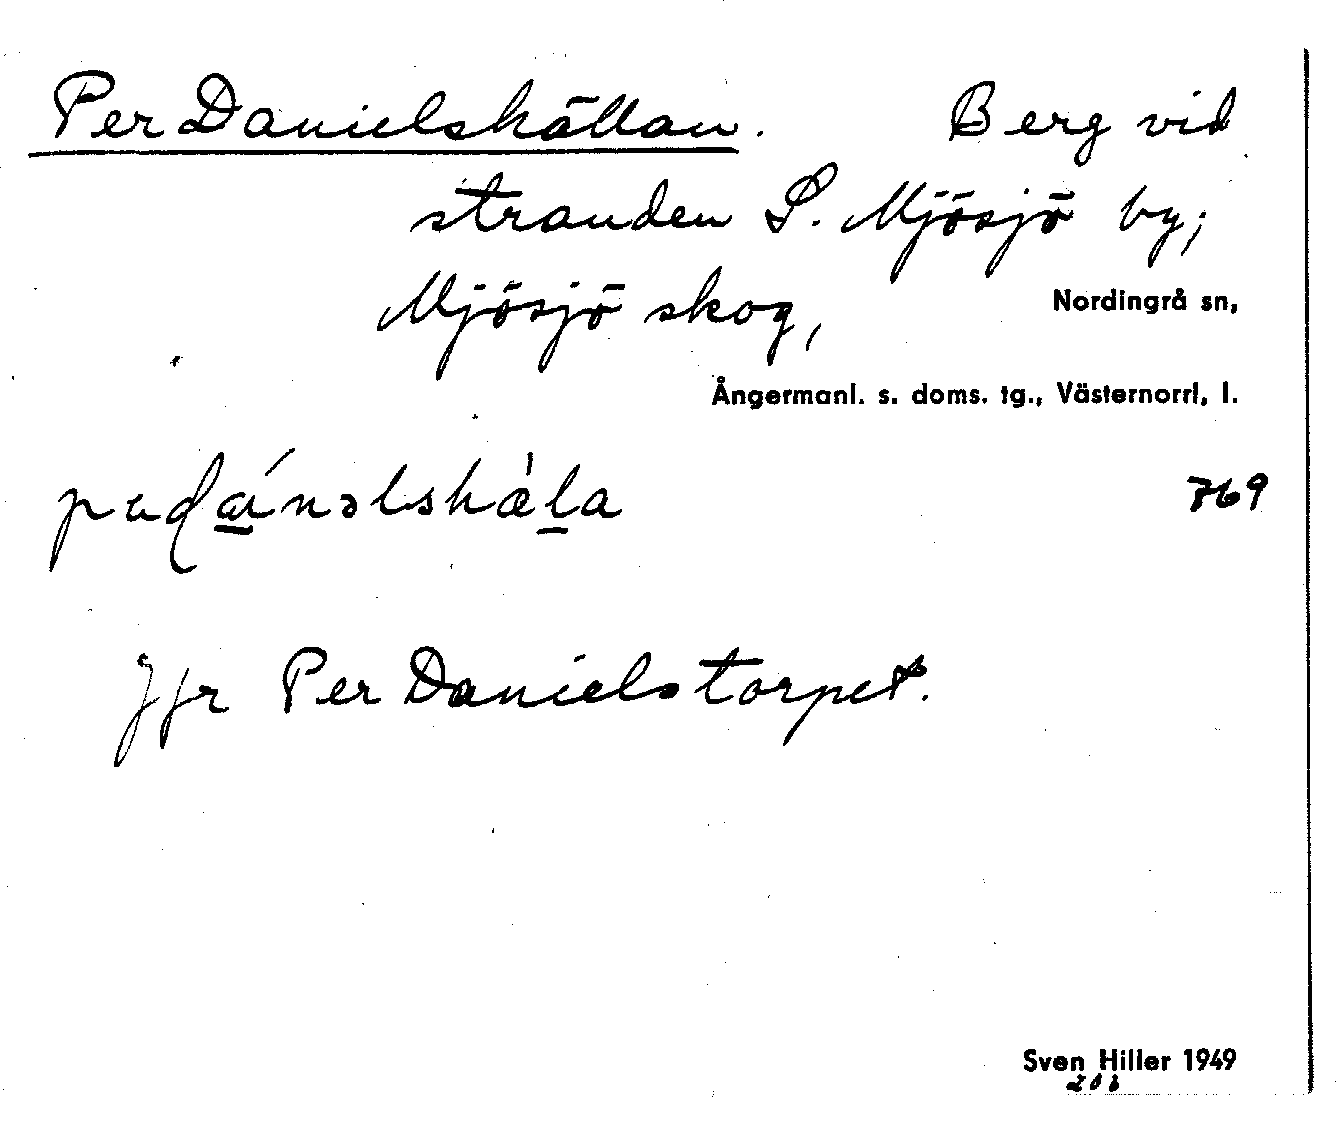 Per Danielshällan. Berg vid
stranden S. Mjösjö by;
Mjösjö skog, Nordingrå sn,
Ångermanl. s. doms. tg., Västernorrl. l.
769
Jfr Per Danielstorpet.
Sven Hiller 1949